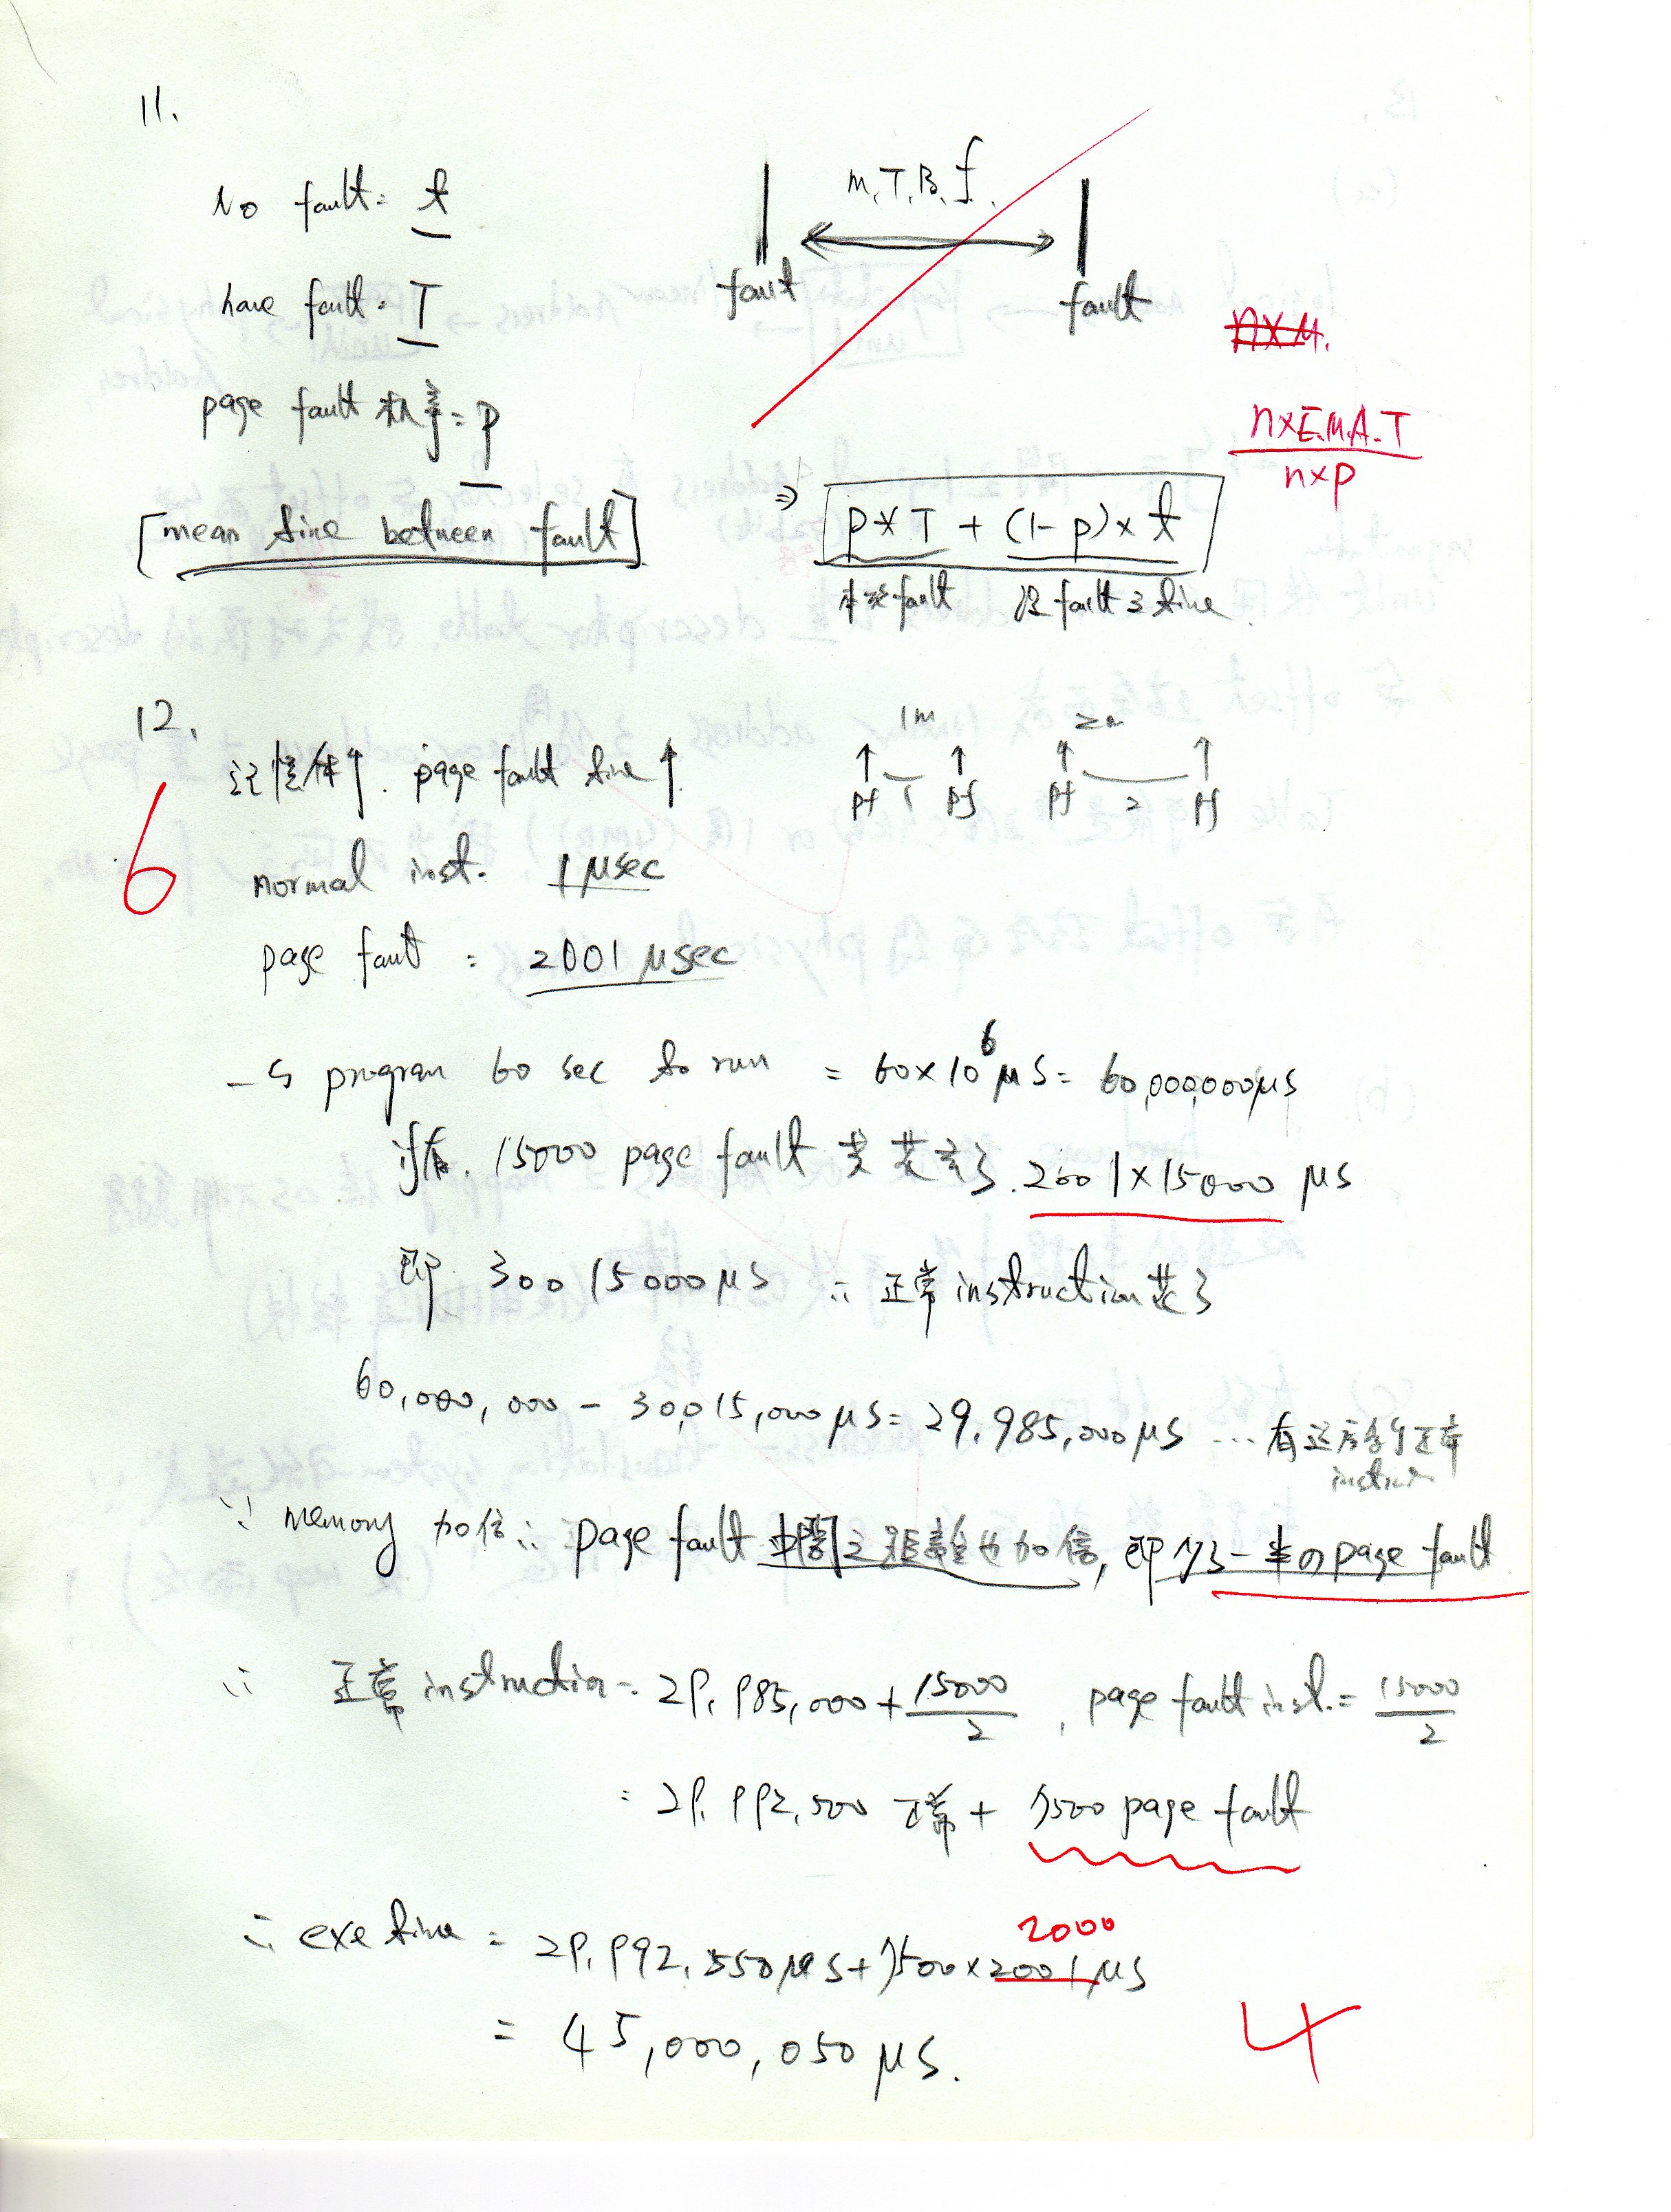 11.
No fault = t
M.T.B.f.
fault
fault
have fault = T
n×M.
page fault 机率 = p
n×E.M.A.T
n×p
[mean time between fault]
⇒ p*T + (1-p)×t
fault 沒 fault 之 time
12.
記憶体↑. page fault time↑
1m
2m
Pf 1 Pf
Pf 2 Pf
6
normal inst. 1 μsec
page fault : 2001 μsec
一个 program 60 sec to run = 60×10⁶ μs = 60,000,000 μs
15000 page fault 共花去了. 2001×15000 μs
即 30015000 μs ∴ 正常 instruction 花了
60,000,000 - 30,015,000 μs = 29,985,000 μs ... 有这么多个正常
instruction
∵ memory 加倍 ∴ page fault 中間之距離也加倍, 即少了一半の page fault
∴ 正常 instruction = 29,985,000 + 15000/2 , page fault inst. = 15000/2
= 29,992,500 正常 + 7500 page fault
2000
∴ exe time = 29,992,550 μs + 7500×2001 μs
= 45,000,050 μs.
4